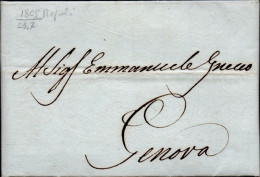 1805 Napoli
Al Sigr Emmanuele Greco
Genova